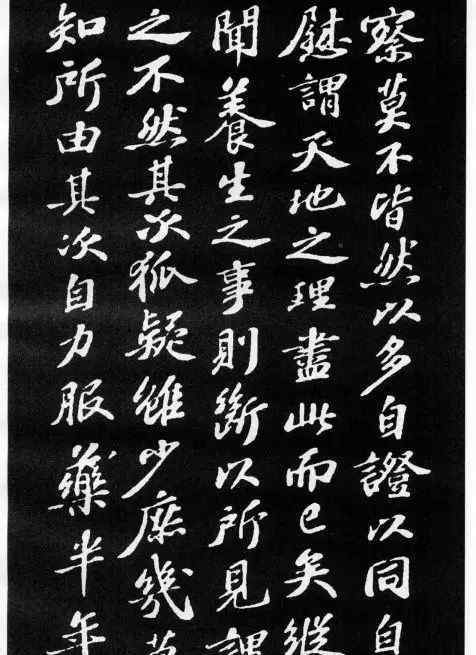 察莫不皆然以多自證以同自
慰謂天地之理盡此而已矣縱
聞養生之事則斷以所見謂
之不然其次狐疑雖少庶幾莫
知所由其次自力服藥半年